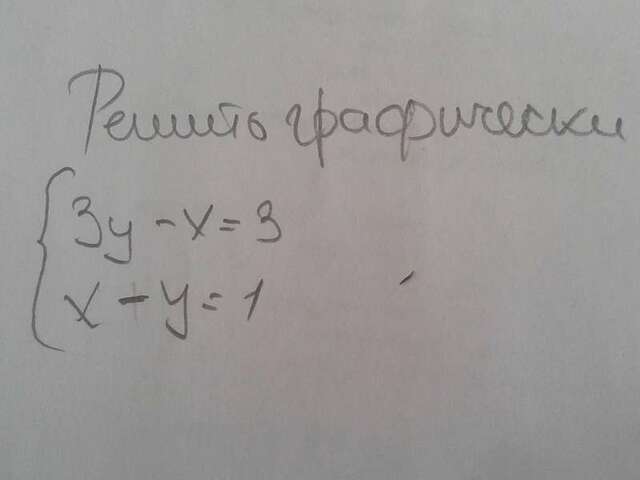 Решить графически
3y - x = 3
x - y = 1